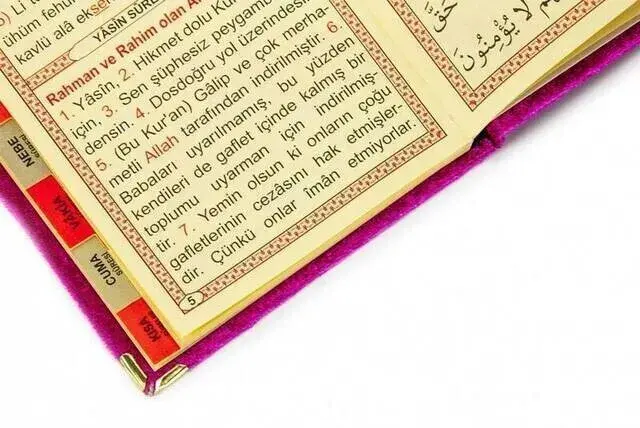 b) Lİ t
ühüm fehüm
kavlü alâ ekser
YÂSİN SÛR
Rahman ve Rahim olan A
1. Yâsîn. 2. Hikmet dolu Kur
için, 3. Sen şüphesiz peygam
densin. 4. Dosdoğru yol üzerindesi
5. (Bu Kur'an) Gâlip ve çok merha-
metli Allah tarafından indirilmiştir. 6.
Babaları uyarılmamış, bu yüzden
kendileri de gaflet içinde kalmış bir
toplumu uyarman için indirilmiş-
tir. 7. Yemin olsun ki onların çoğu
gafletlerinin cezâsını hak etmişler-
dir. Çünkü onlar îmân etmiyorlar.
5
حَقَّ
لَا يُؤْمِنُونَ
NEBE
SÛRESİ
VÂKIA
CUMA
SÛRESİ
KISA